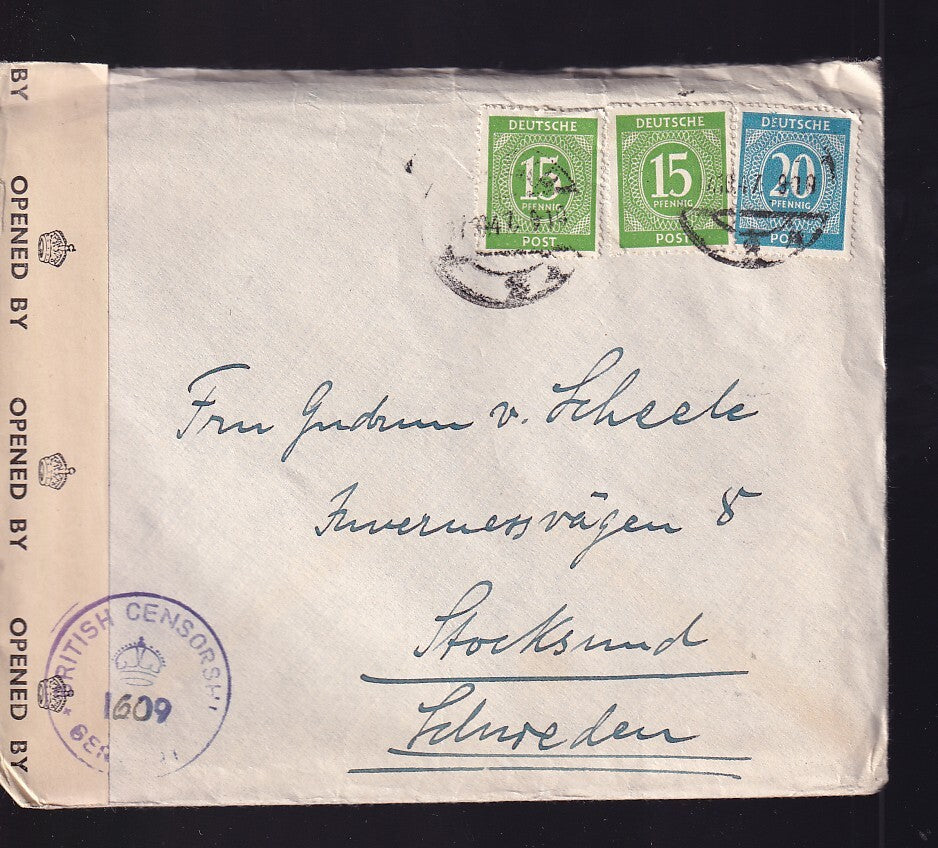 BY
OPENED BY
OPENED BY
OPENED BY
DEUTSCHE
15
PFENNIG
POST
DEUTSCHE
15
PFENNIG
POST
DEUTSCHE
20
PFENNIG
POST
Frau Gudrun v. Scheele
Invernessvägen 8
Stocksund
Schweden
BRITISH CENSORSHI
1609
GER